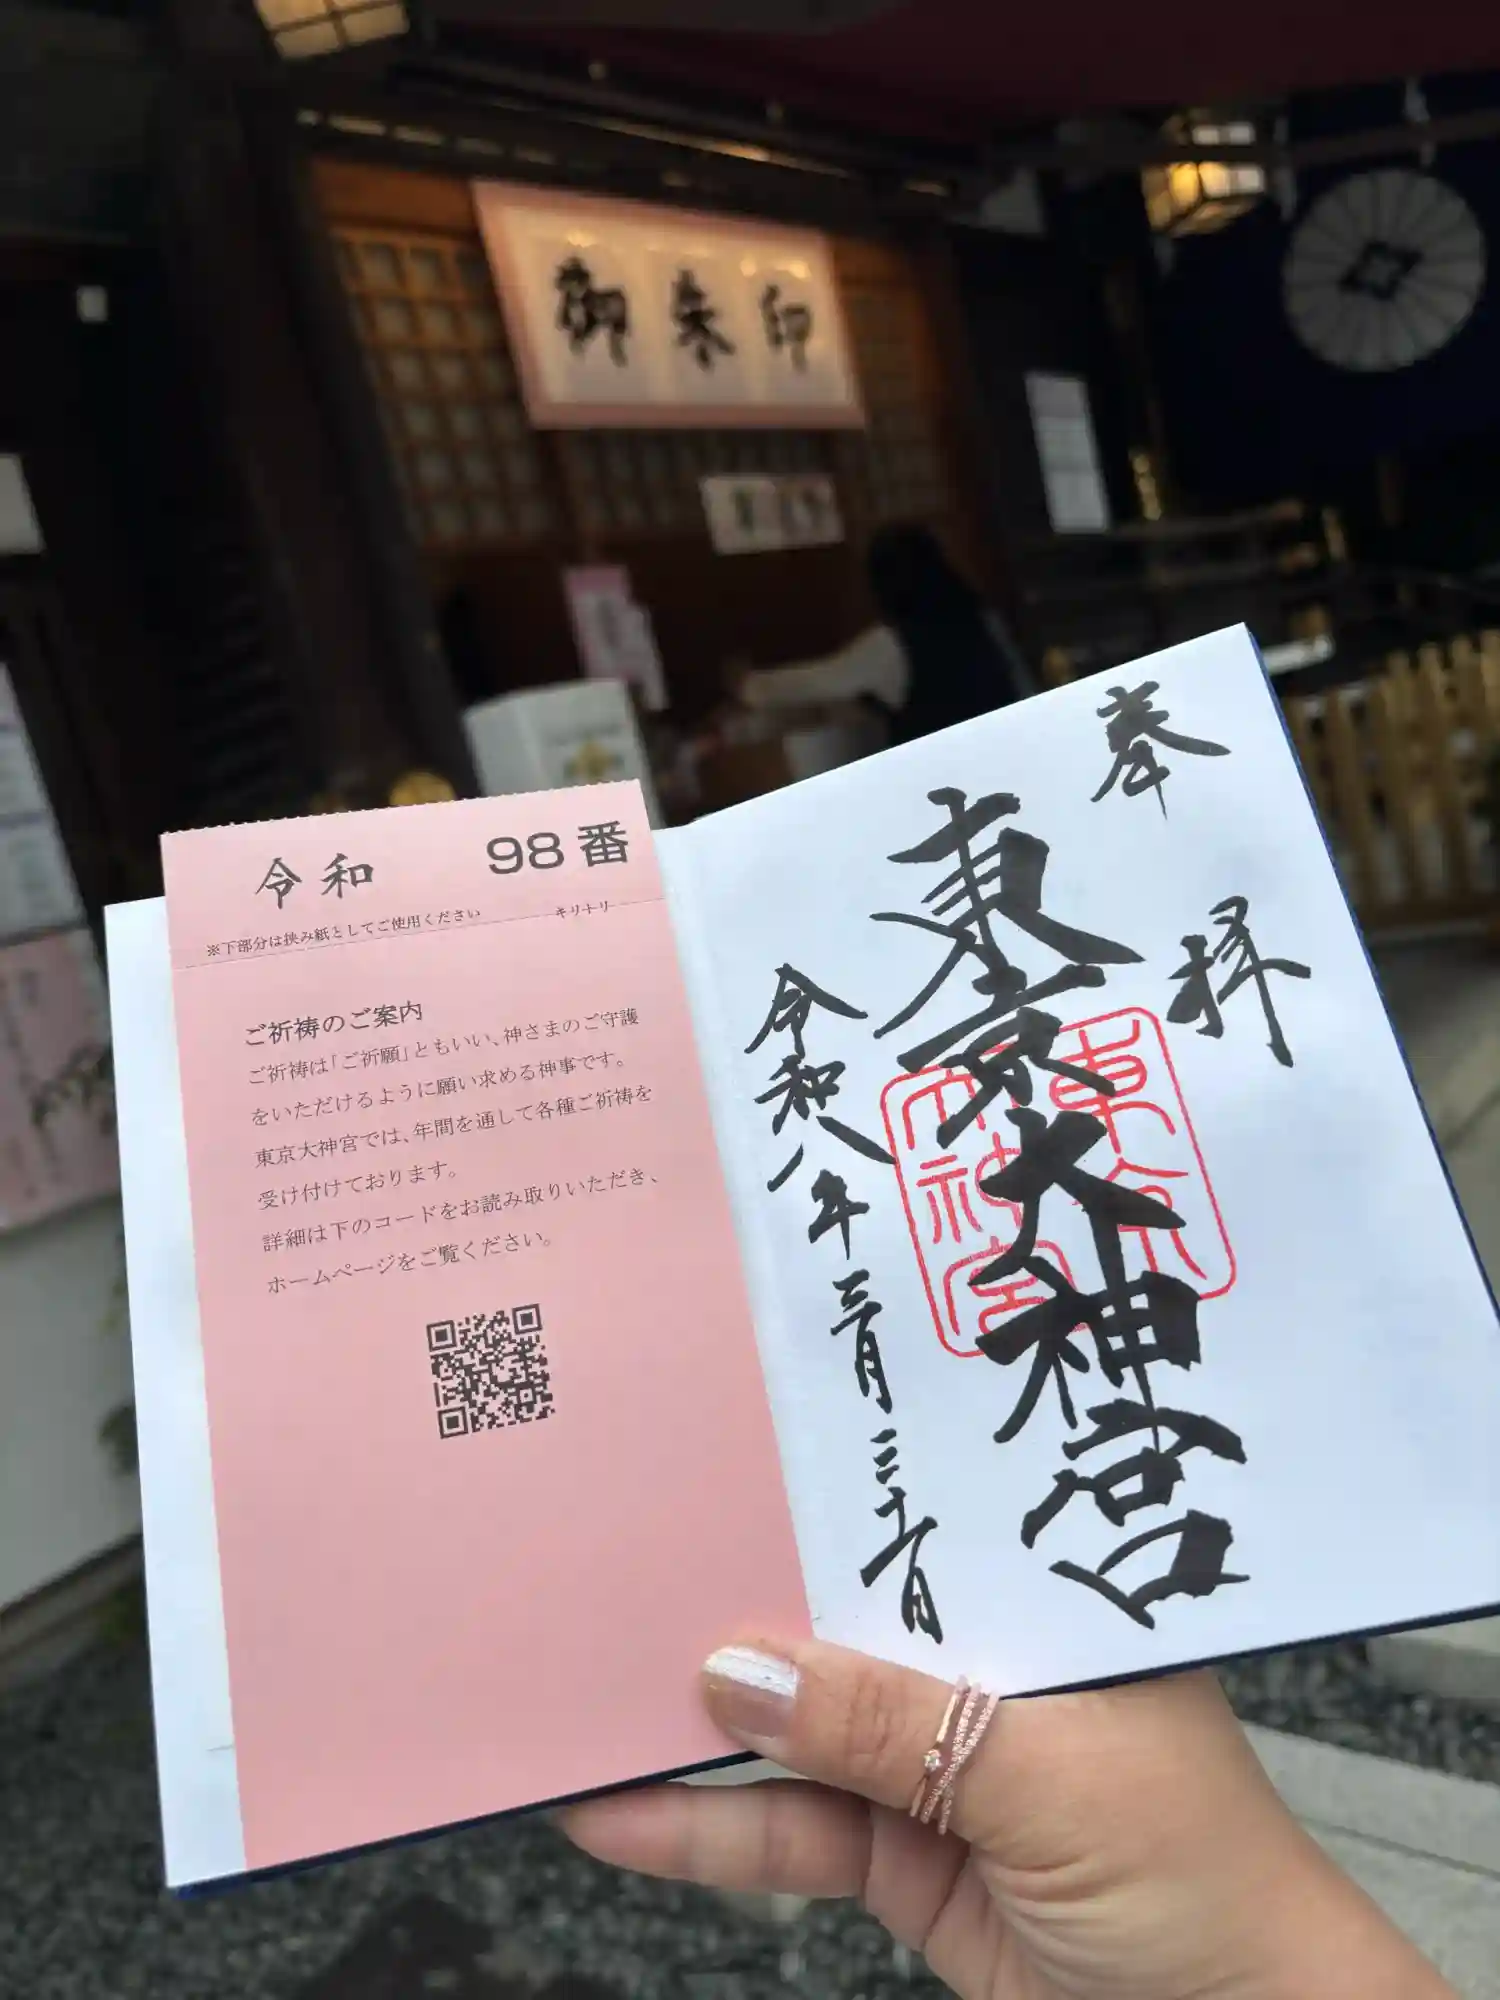 御朱印
令和 98番
※下部分は挟み紙としてご使用ください キリトリ
ご祈祷のご案内
ご祈祷は「ご祈願」ともいい、神さまのご守護
をいただけるように願い求める神事です。
東京大神宮では、年間を通して各種ご祈祷を
受け付けております。
詳細は下のコードをお読み取りいただき、
ホームページをご覧ください。
奉拝
東京大神宮
東京大神宮
令和八年三月三十一日